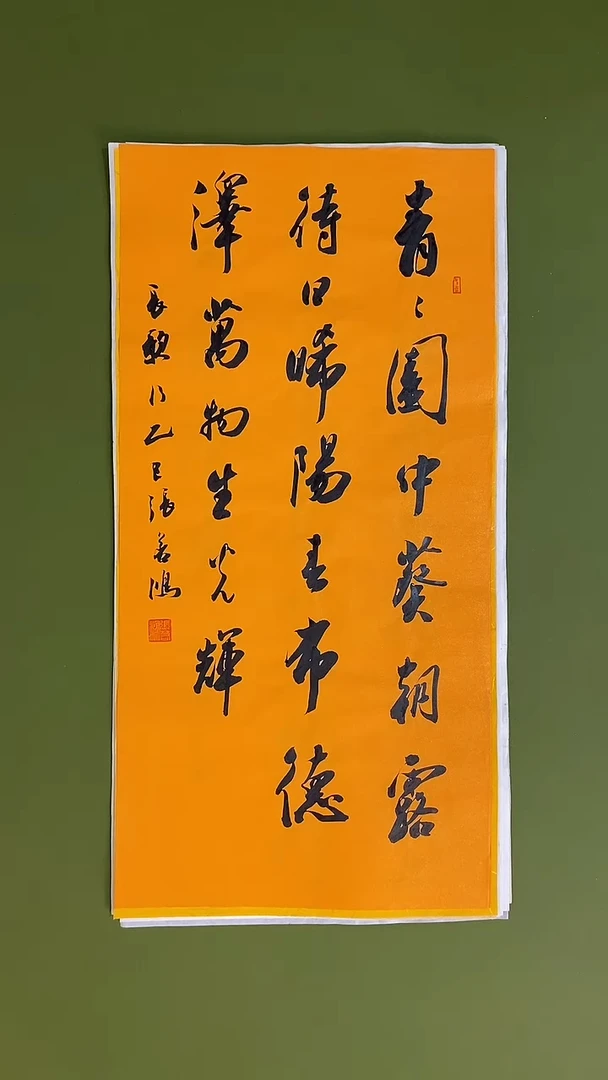 青〻園中葵朝露
待日晞陽春布德
澤萬物生光輝
長歌行乙巳張善鴻